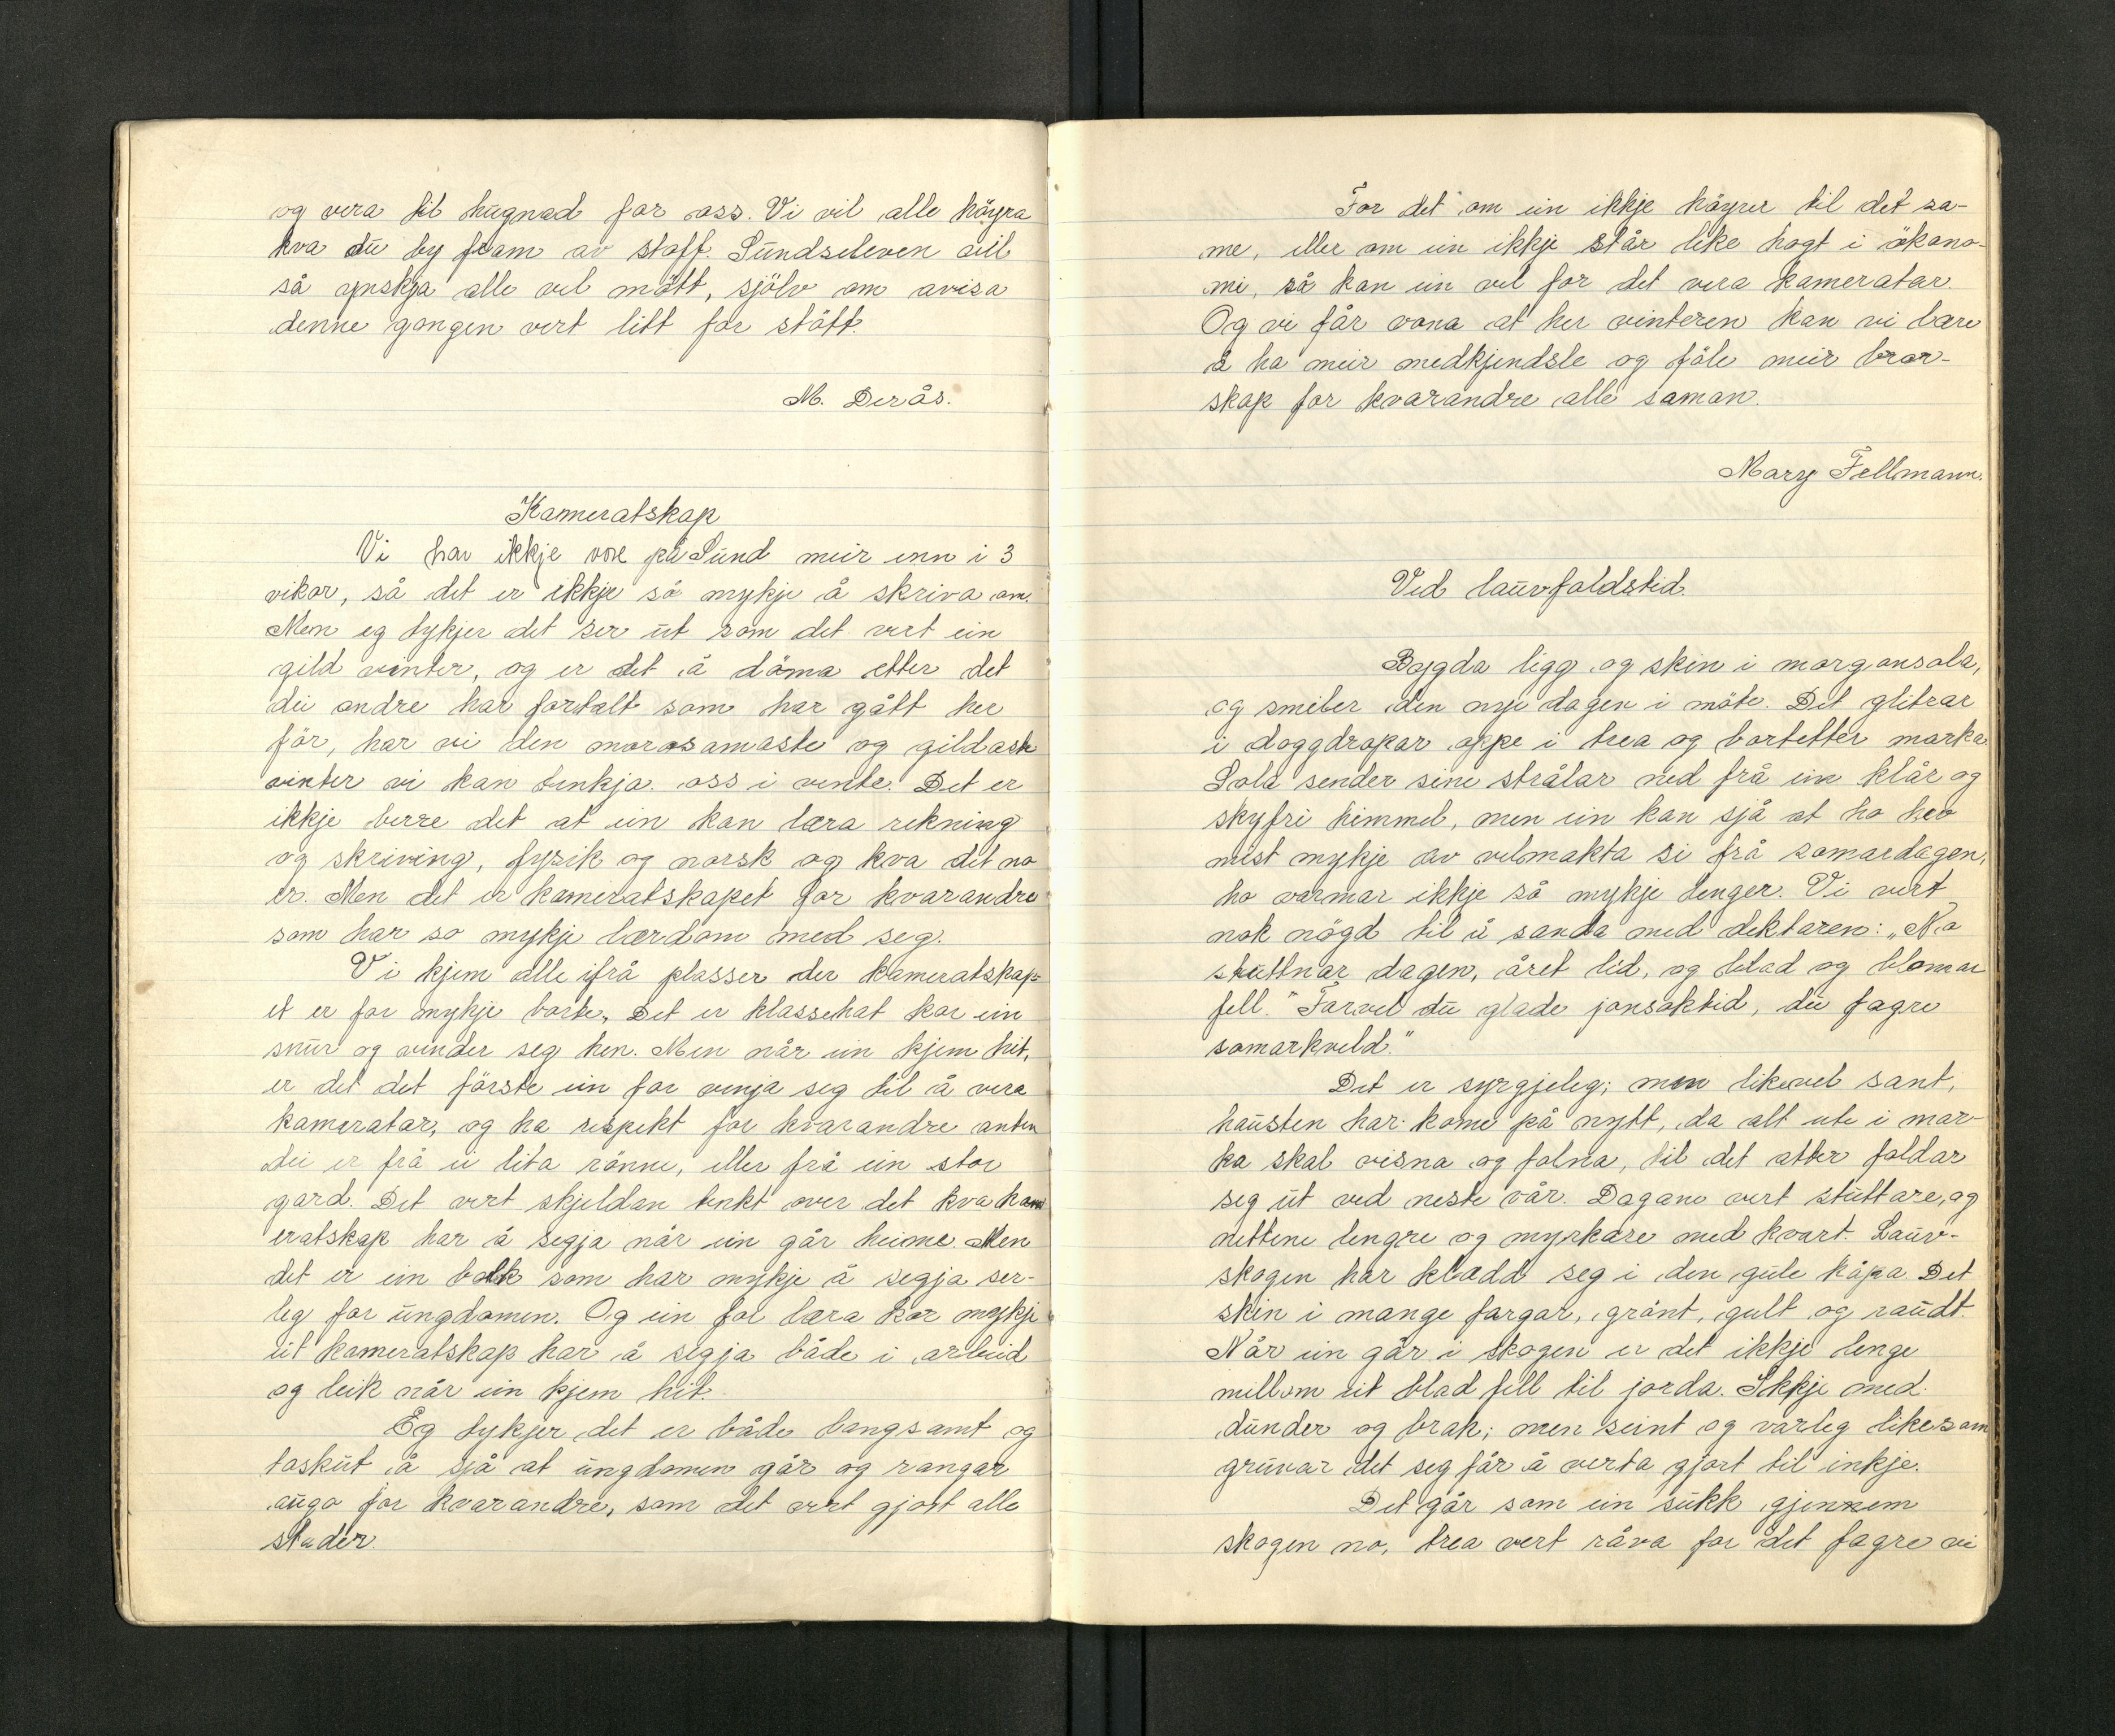 og vera til hugnad for oss. Vi vil alle höyra
kva du by fram av stoff. Sundseleven vil
så ynskja alle vel mött, sjölv om avisa
denne gongen vert litt for stött.
M. Derås.
Kameratskap
Vi har ikkje vore på Sund meir enn i 3
vikor, så det er ikkje så mykje å skriva om.
Men eg tykjer det ser ut som det vert ein
gild vinter, og er det å döma etter det
dei andre har fortalt som har gått her
för, har vi den morosamaste og gildaste
vinter vi kan tenkja oss i vente. Det er
ikkje berre det at ein kan læra rekning
og skriving, fysik og norsk og kva det no
er. Men det er kameratskapet for kvarandre
som har so mykje lærdom med seg.
Vi kjem alle ifrå plasser der kameratskap-
et er for mykje borte. Det er klassehat kor ein
snur og vinder seg hen. Men når ein kjem hit,
er det det förste ein får venja seg til å vera
kameratar, og ha respekt for kvarandre anten
dei er frå ei lita rönne, eller frå ein stor
gard. Det vert skjeldan tenkt over det kva kam
eratskap har å segja når ein går heime. Men
det er ein bolk som har mykje å segja ser-
leg for ungdomen. Og ein får læra kor mykje
eit kameratskap har å segja både i arbeid
og leik når ein kjem hit.
Eg tykjer det er både langsamt og
taskut å sjå at ungdomen går og rangar
augo for kvarandre, som det vert gjort alle
stader.
For det om ein ikkje höyrer til det sa-
me, eller om ein ikkje står like hogt i ökono-
mi, så kan ein vel for det vera kameratar.
Og vi får vona at her vinteren kan vi lære
å ha meir medkjendsle og föle meir bror-
skap for kvarandre alle saman.
Mary Fellmann.
Ved lauvfaldstid.
Bygda ligg og skin i morgonsola,
og smiler den nye dagen i möte. Det glitrar
i doggdropar oppe i trea og bortetter marka.
Sola sender sine strålar ned frå ein klår og
skyfri himmel, men ein kan sjå at ho hev
mist mykje av velmakta si frå somardagen,
ho varmar ikkje så mykje lenger. Vi vert
nok nögd til å sanda med diktaren: „No
stuttnar dagen, året lid, og blad og blomar
fell." Farvel du glade jonsoktid, du fagre
somarkveld."
Det er syrgjeleg; men likevel sant,
hausten har kome på nytt, da alt ute i mar-
ka skal visna og folna, til det atter foldar
seg ut ved neste vår. Dagane vert stuttare, og
nettene lengre og myrkare med kvart. Lauv-
skogen har klædd seg i den gule kåpa. Det
skin i mange fargar, grönt, gult og raudt.
Når ein går i skogen er det ikkje lenge
millom eit blad fell til jorda. Ikkje med
dunder og brak; men seint og varleg likesom
gruvar det seg för å verta gjort til inkje.
Det går som ein sukk gjennem
skogen no, trea vert röva for det fagre vi